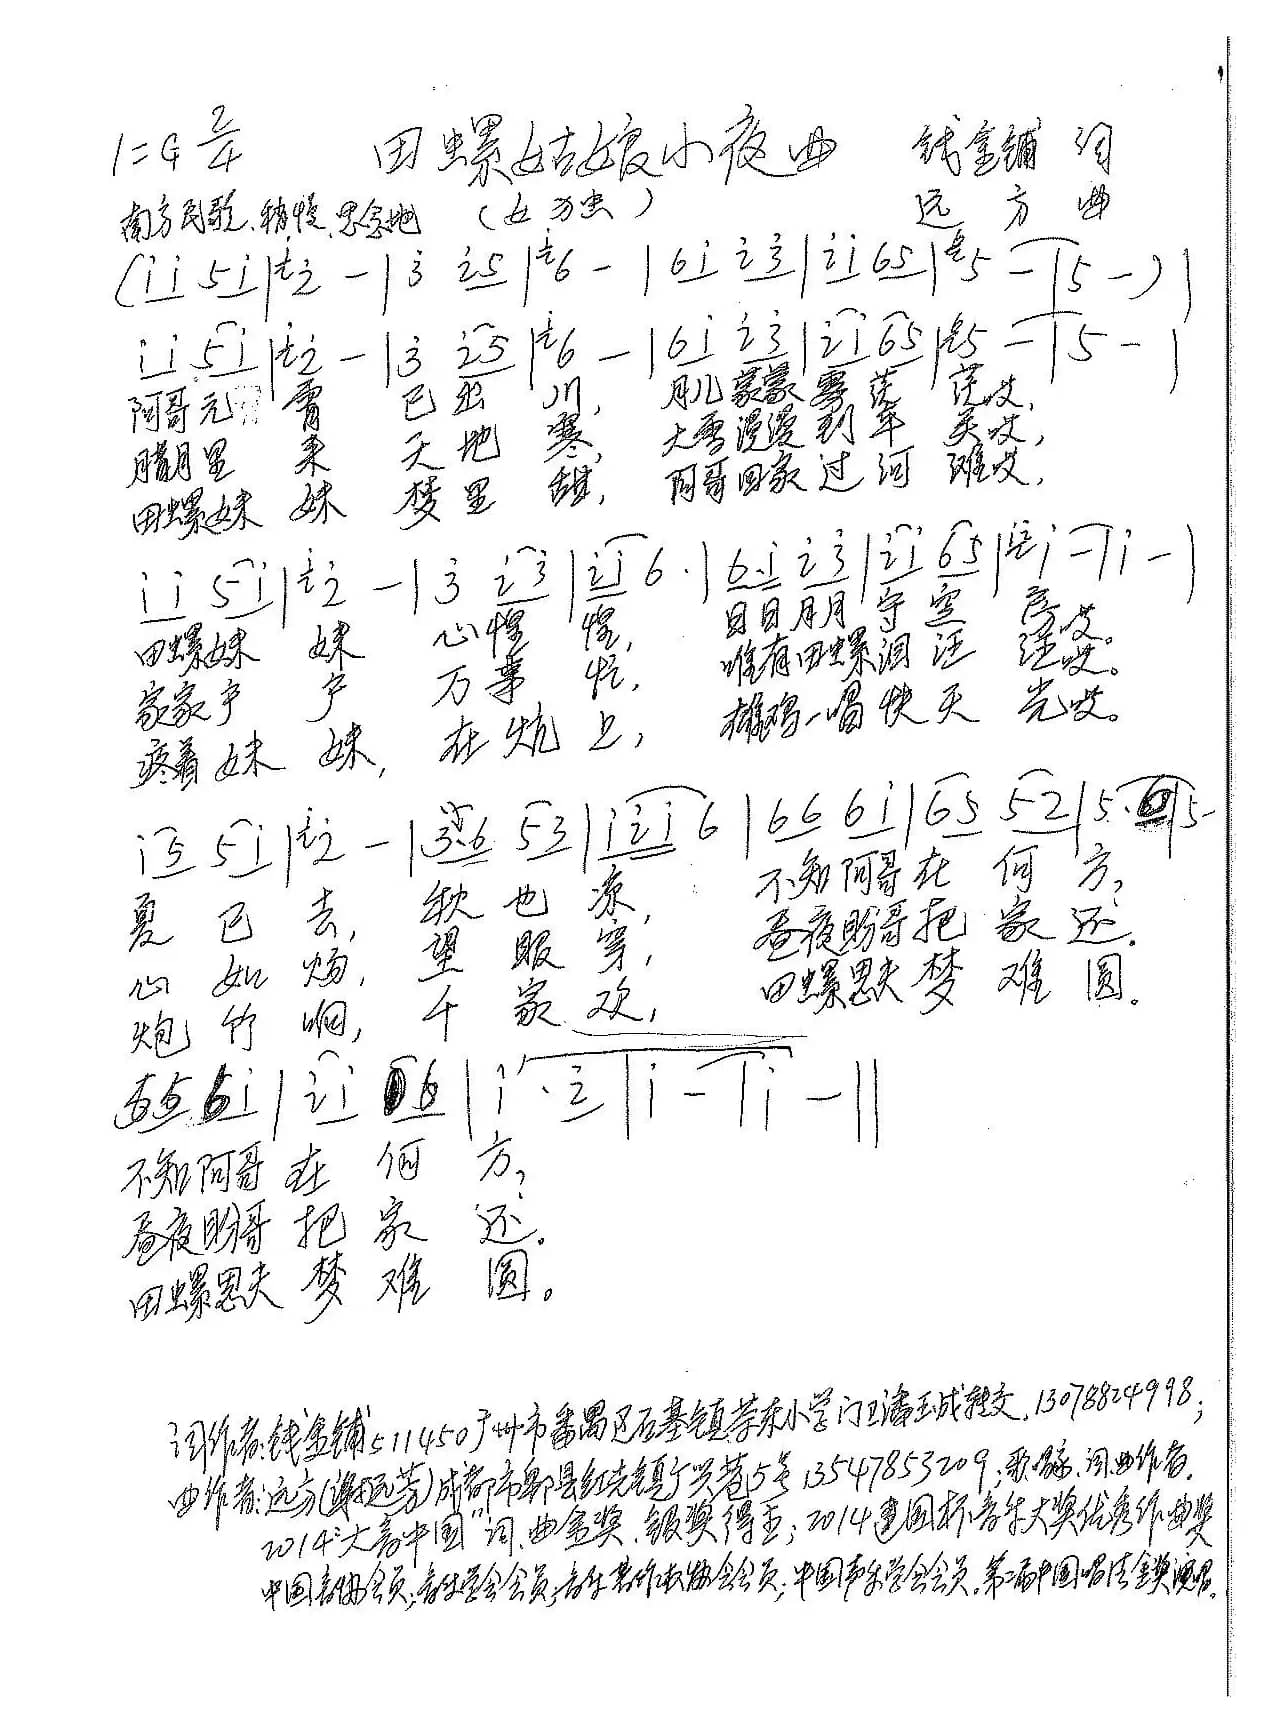 1=G 2/4 田螺姑娘小夜曲 钱金铺 词
南方民歌、稍慢、思念地 (女 独) 远方 曲
(i i 5 i | 2 - | 3 2 5 | 6 - | 6 i 2 3 | 2 i 6 5 | 5 - | 5 - ) |
i i 5 i | 2 - | 3 2 5 | 6 - | 6 i 2 3 | 2 i 6 5 | 5 - | 5 - |
阿哥元 宵 已 出 川, 月儿蒙蒙雾茫 茫哎,
腊月里 来 天 地 寒, 大雪漫漫到年 关哎,
田螺妹 妹 梦 里 甜, 阿哥回家过河 难哎,
i i 5 i | 2 - | 3 2 3 | 2 i 6 · | 6 · i 2 3 | 2 i 6 5 | i - | i - |
田螺妹 妹 心惶 惶, 日日月月守空 房哎。
家家户 户 万事 忙, 唯有田螺泪汪 汪哎。
疼着妹 妹, 在炕上, 雄鸡一唱快天 光哎。
i 5 5 i | 2 - | 3 · 6 5 3 | i 2 i 6 | 6 6 6 i | 6 5 5 2 | 5 · 6 | 5 -
夏 已 去, 秋 也 凉, 不知阿哥在 何 方,
心 如 炀, 望 眼 穿, 昼夜盼哥把 家 还.
炮 竹 响, 千 家 欢, 田螺思夫梦 难 圆。
5 5 6 i | 2 i 6 | i · 2 | i - | i - ||
不知阿哥 在 何 方,
昼夜盼哥 把 家 还.
田螺思夫 梦 难 圆。
词作者:钱金铺511450广州市番禺区石基镇荣东小学门卫潘玉成转交.13078824998;
曲作者:远方(谢远芳)成都市郫县红光镇广兴巷5号13547853209;歌唱家、词曲作者.
2014"大音中国"词.曲金奖.银奖得主;2014建国杯音乐大奖优秀作曲奖
中国音协会员;音乐学会会员;音乐著作权协会会员;中国声乐学会会员.第二届中国唱法金奖